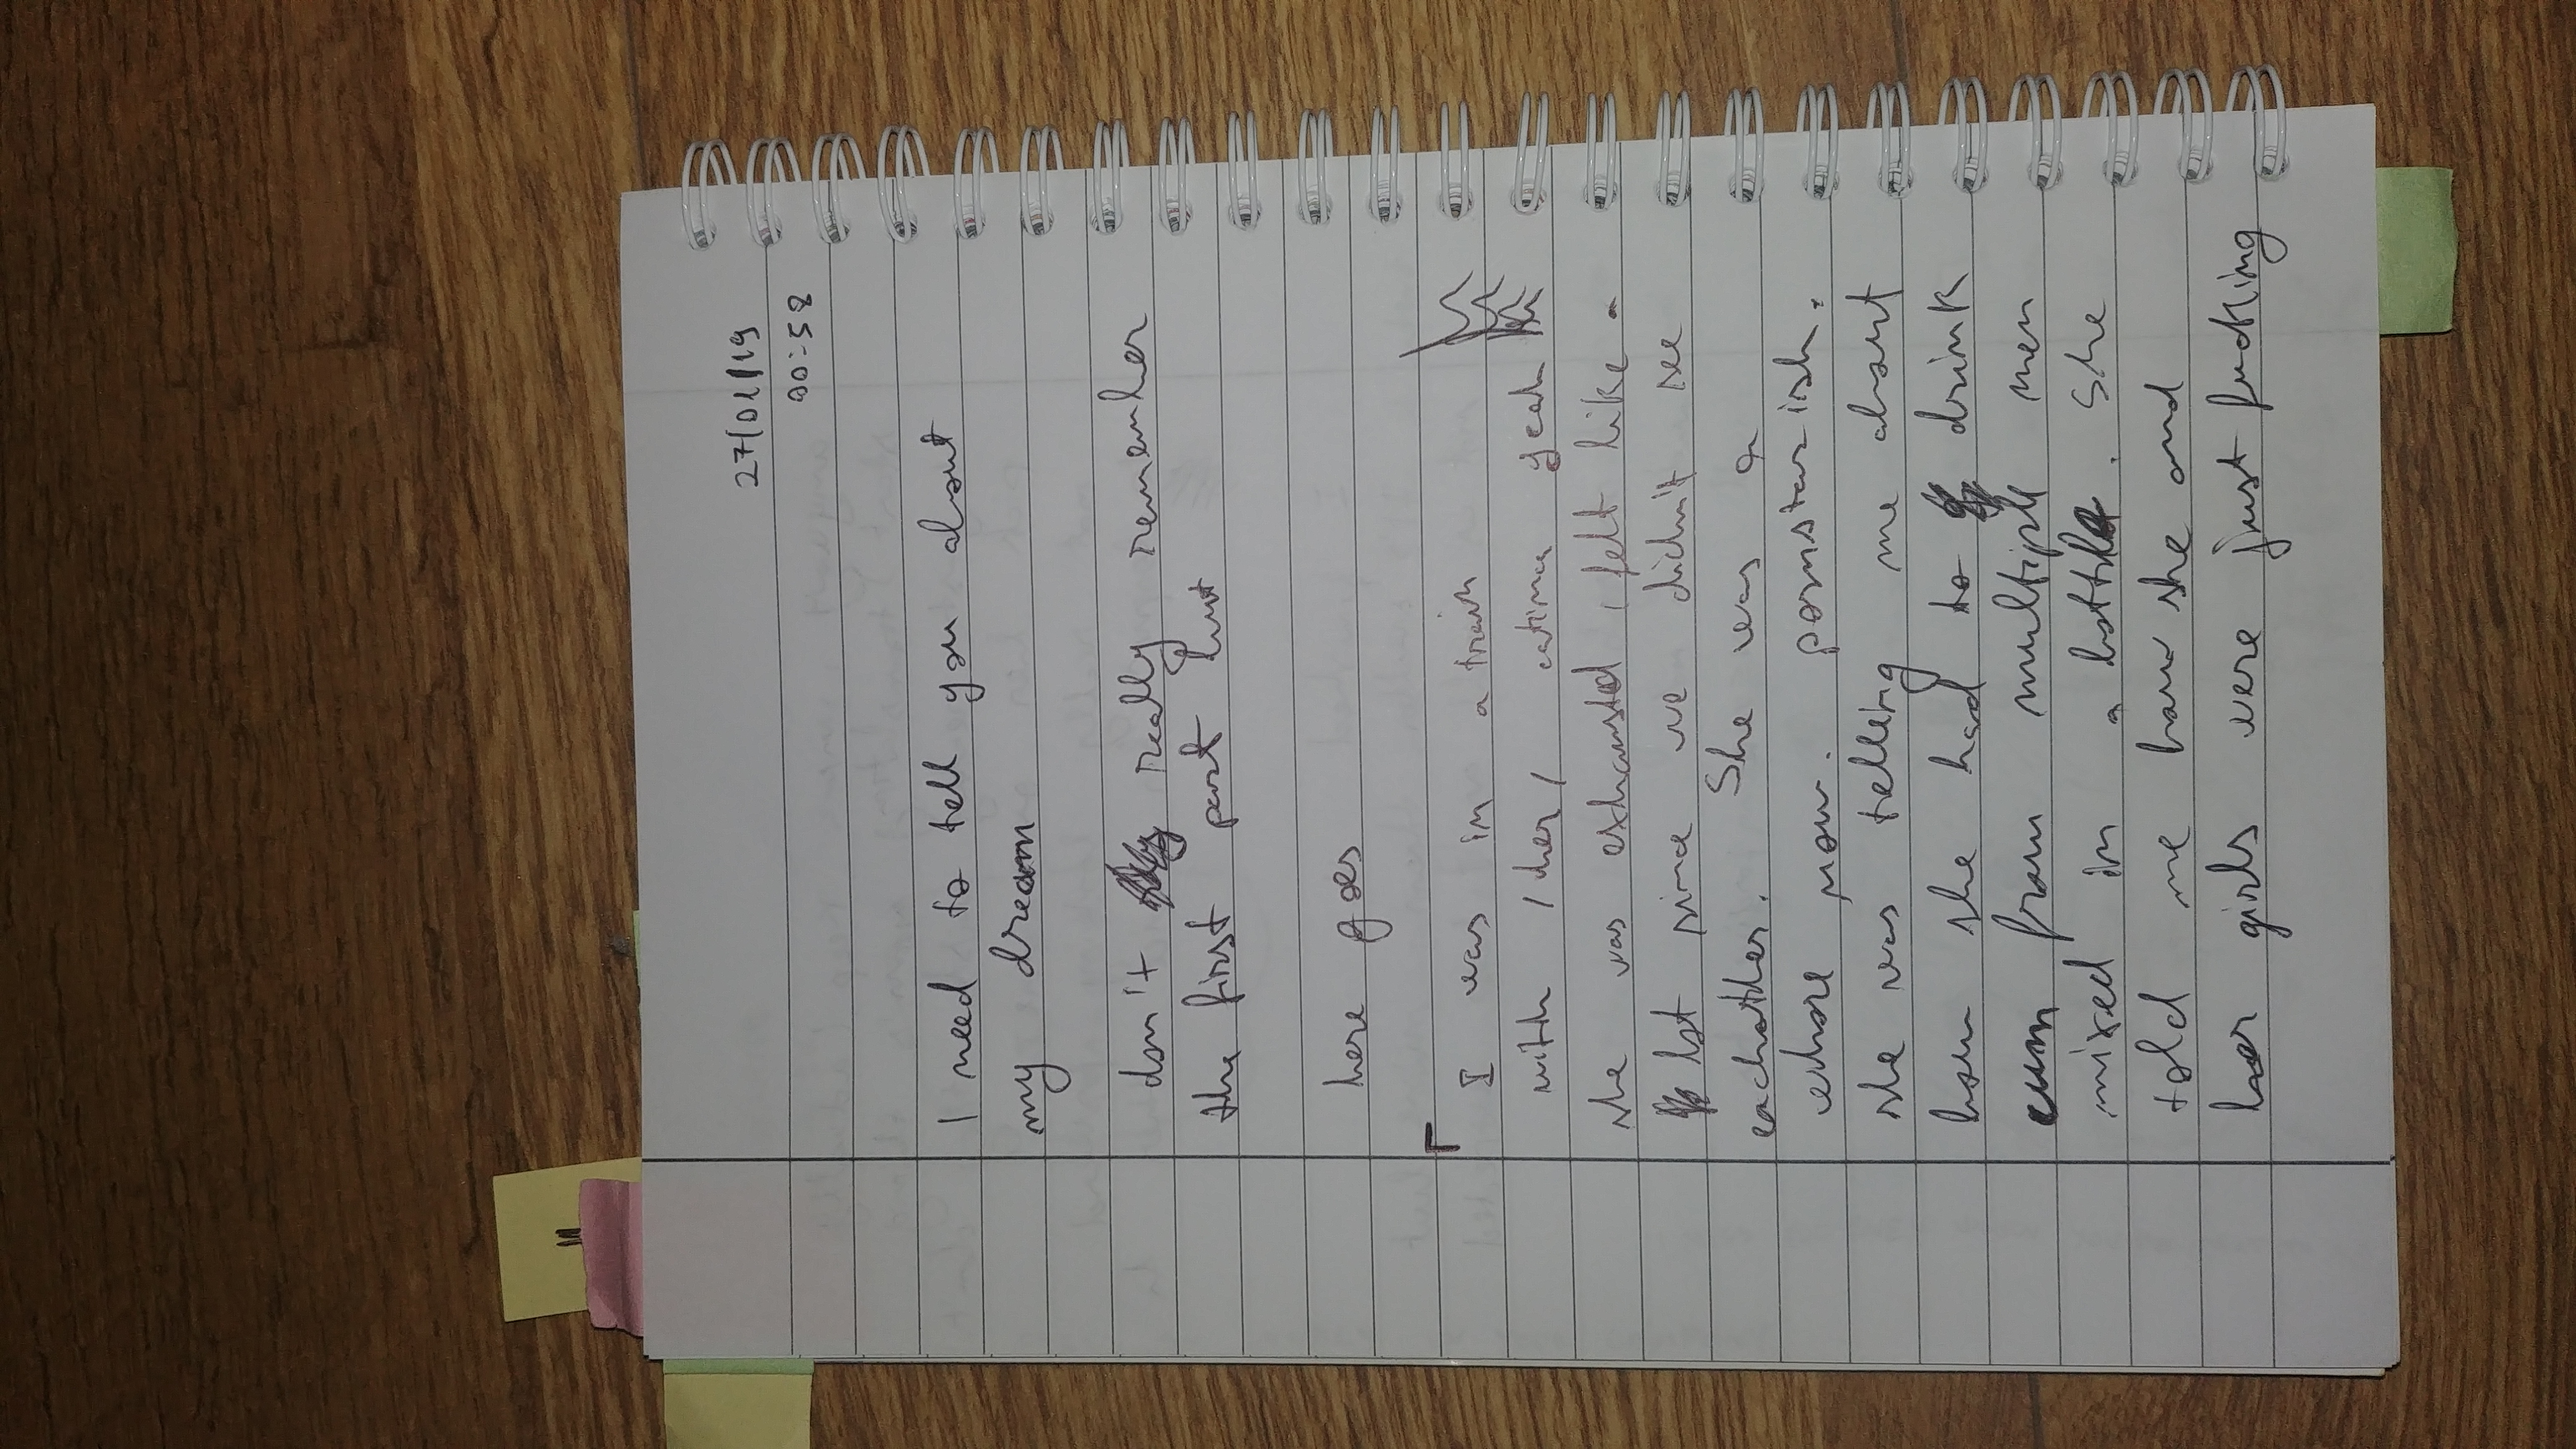 27/01/19
00:58
I need to tell you about
my dream
don't really remember
the first part but
here goes
I was in a train
with /her/ yeah
she was exhausted, felt like a
lot since we didn't see
eachother. She was a
whore now. pornstarish.
she was telling me about
how she had to drink
cum from multiple men
mixed in a bottle. She
told me how she and
her girls were just fucking